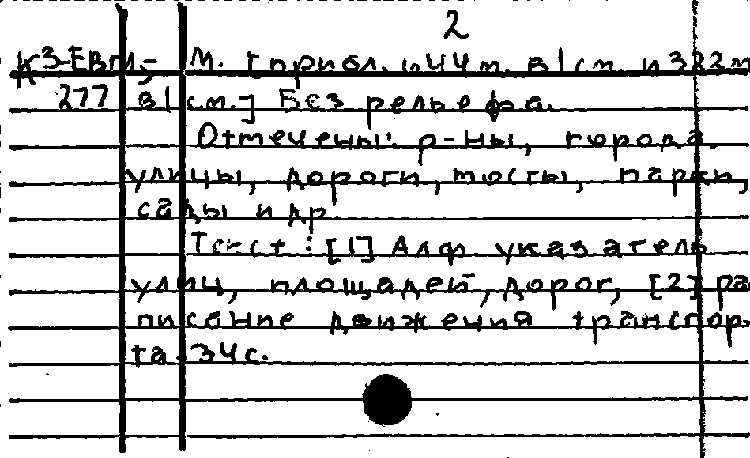 2
К3-Евг- М. [прибл. и 44 м. в 1 см. и 322 м
277 в 1 см.] Без рельефа.
Отмечены: р-ны, города.
улицы, дороги, мосты, парки,
сады и др
Текст: [1] Алф указатель
улиц, площадей, дорог, [2] ра
писание движения транспор
та. 34 с.